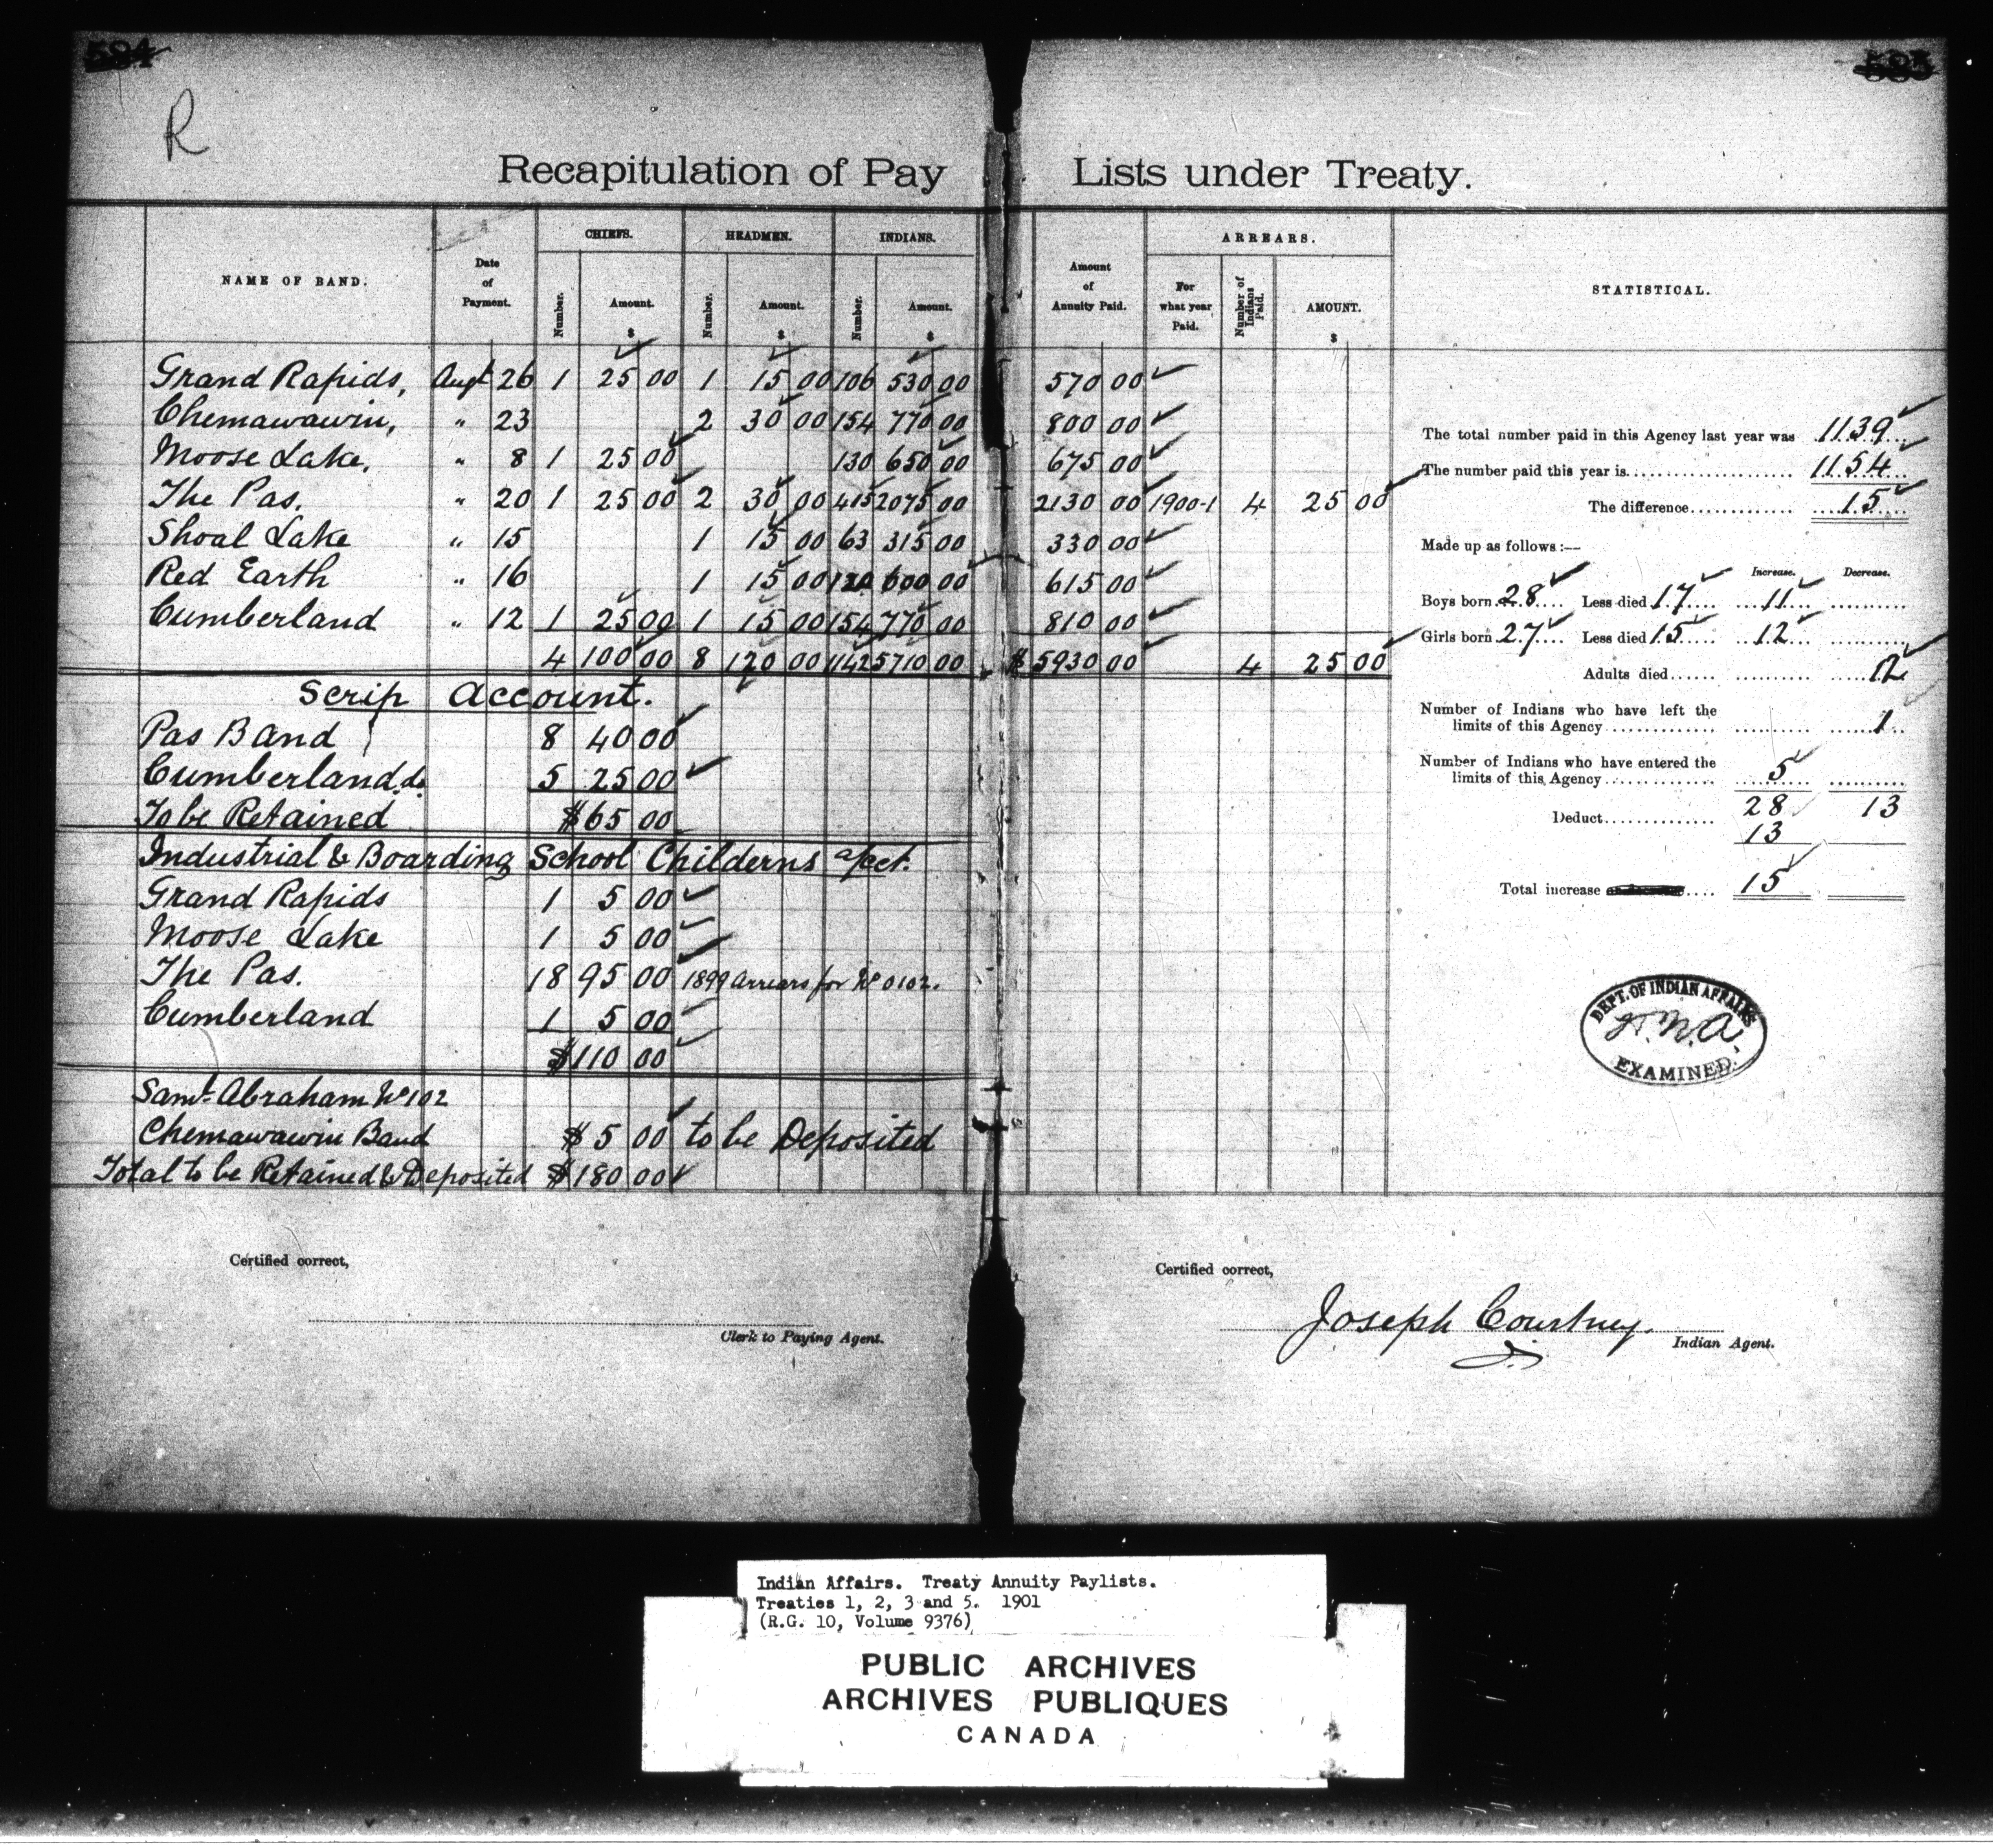 584
585
R
Recapitulation of Pay Lists under Treaty.
NAME OF BAND. Date of Payment. CHIEFS. HEADMEN. INDIANS. Amount of Annuity Paid. ARREARS. STATISTICAL.
Number. Amount. $ Number. Amount. $ Number. Amount. $ For what year Paid. Number of Indians Paid. AMOUNT. $
Grand Rapids, Augt 26 1 25 00 1 15 00 106 530 00 570 00
Chemawawin, " 23 2 30 00 154 770 00 800 00
Moose Lake, " 8 1 25 00 130 650 00 675 00
The Pas. " 20 1 25 00 2 30 00 415 2075 00 2130 00 1900-1 4 25 00
Shoal Lake " 15 1 15 00 63 315 00 330 00
Red Earth " 16 1 15 00 120 600 00 615 00
Cumberland " 12 1 25 00 1 15 00 154 770 00 810 00
4 100 00 8 120 00 1142 5710 00 $ 5930 00 4 25 00
Scrip Account.
Pas Band 8 40 00
Cumberland do 5 25 00
To be Retained $65 00
Industrial & Boarding School Childerns a/cct.
Grand Rapids 1 5 00
Moose Lake 1 5 00
The Pas. 18 95 00 1899 Arrears for No 0102.
Cumberland 1 5 00
$110 00
Saml. Abraham No 102
Chemawawin Band $5 00 to be Deposited
Total to be Retained & Deposited $180 00
The total number paid in this Agency last year was 1139
The number paid this year is 1154
The difference 15
Made up as follows:—
Increase. Decrease.
Boys born 28 Less died 17 11
Girls born 27 Less died 15 12
Adults died 12
Number of Indians who have left the
limits of this Agency 1
Number of Indians who have entered the
limits of this Agency 5
28 13
Deduct 13
Total increase 15
DEPT. OF INDIAN AFFAIRS
EXAMINED.
Certified correct,
Clerk to Paying Agent.
Certified correct,
Joseph Courtney.
Indian Agent.
Indian Affairs. Treaty Annuity Paylists.
Treaties 1, 2, 3 and 5. 1901
(R.G. 10, Volume 9376)
PUBLIC ARCHIVES
ARCHIVES PUBLIQUES
CANADA